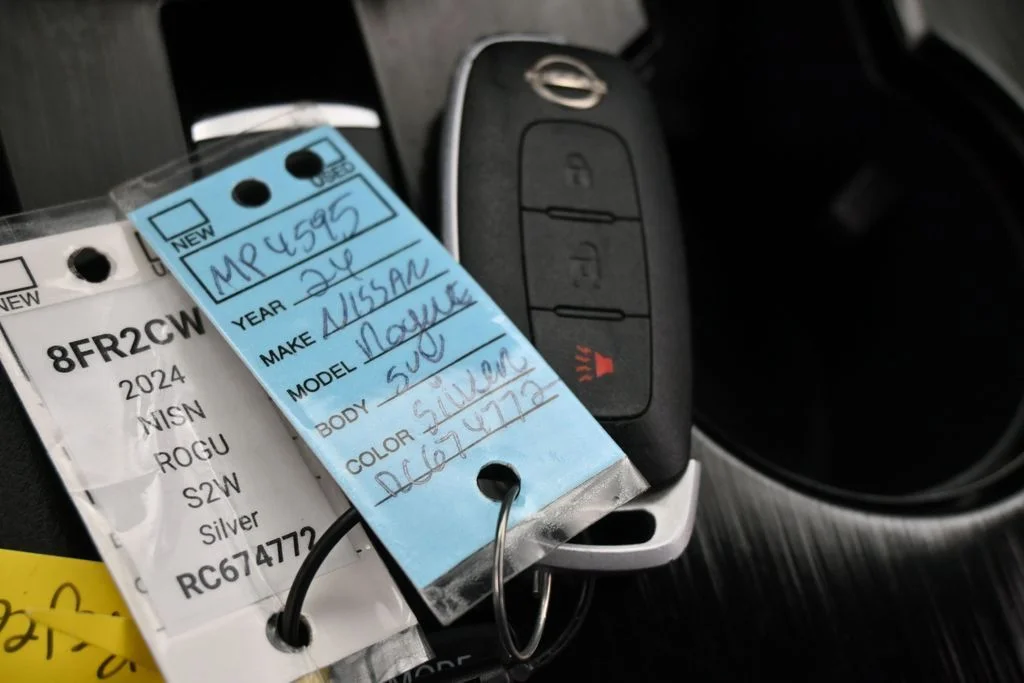 NEW
8FR2CW
2024
NISN
ROGU
S2W
Silver
RC674772
NEW
USED
MP4595
YEAR 24
MAKE NISSAN
MODEL Rogue
BODY SUV
COLOR Silver
RC674772
MODE